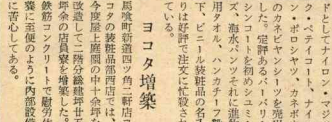 ドしてナイロン・
ク・テイコート、ナイ
ン・ポロシヤツ、カネボ
のカネビヤンシーツを売出
した。定評あるバーバリー
シンコートを初めシユミー
ズ、海水パンツそれに進
用タオル、ハンカチーフ
下、ビニール装粧品の名
りは好評で注文に忙殺さ
ている。
ヨコタ増築
馬喰町新道四ツ角二軒店
コタの装粧品部西店では、
今度屋上庭園の中十余坪
改造して二階分総建坪廿
坪余の店員寮を増築した。
鉄筋コンクリートで慰労
寮に至便のように内部設
に苦心してある。